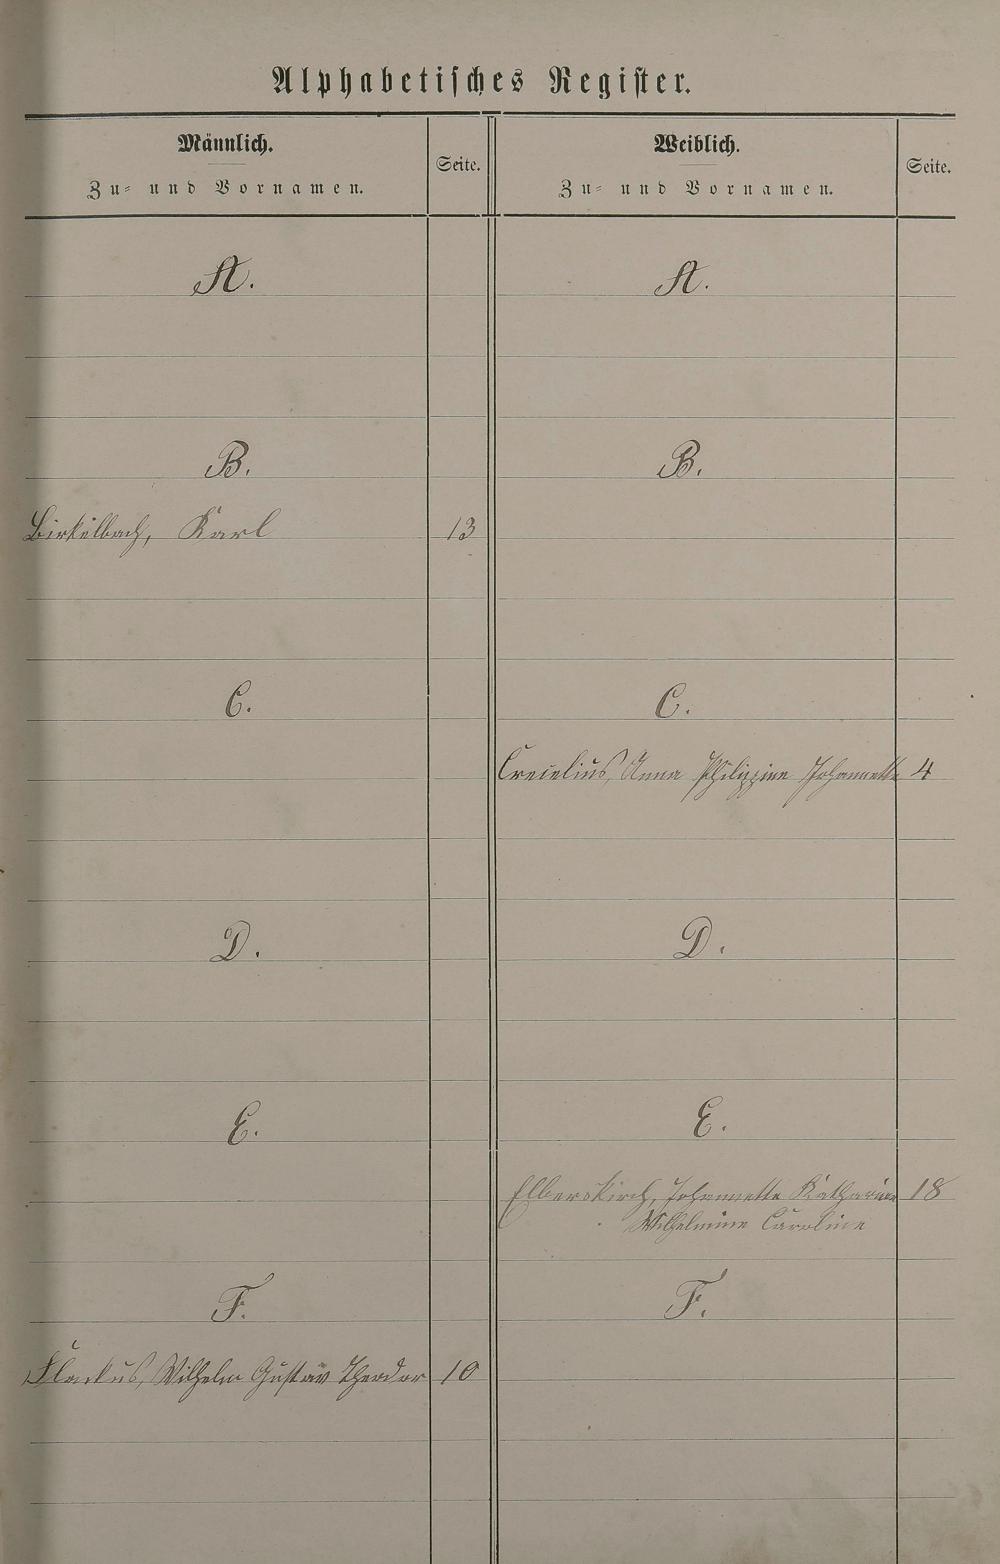 Alphabetisches Register.
Männlich.
Zu- und Vornamen.
Seite.
Weiblich.
Zu- und Vornamen.
Seite.
A.
A.
B.
B.
Birkelbach, Karl 13
C.
C.
Crecelius, Anna Philippine Johannette 4
D.
D.
E.
E.
Elberskirch, Johannette Katharine 18
Wilhelmine Caroline
F.
F.
Flackus, Wilhelm Gustav Theodor 10